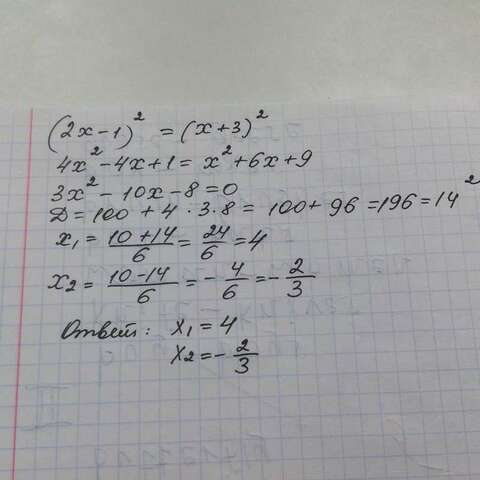 (2x-1)² = (x+3)²
4x²-4x+1 = x²+6x+9
3x²-10x-8=0
D=100+4·3·8 = 100+96=196=14²
x₁= 10+14/6 = 24/6 = 4
x₂= 10-14/6 = -4/6 = -2/3
Ответ: x₁=4
x₂=-2/3